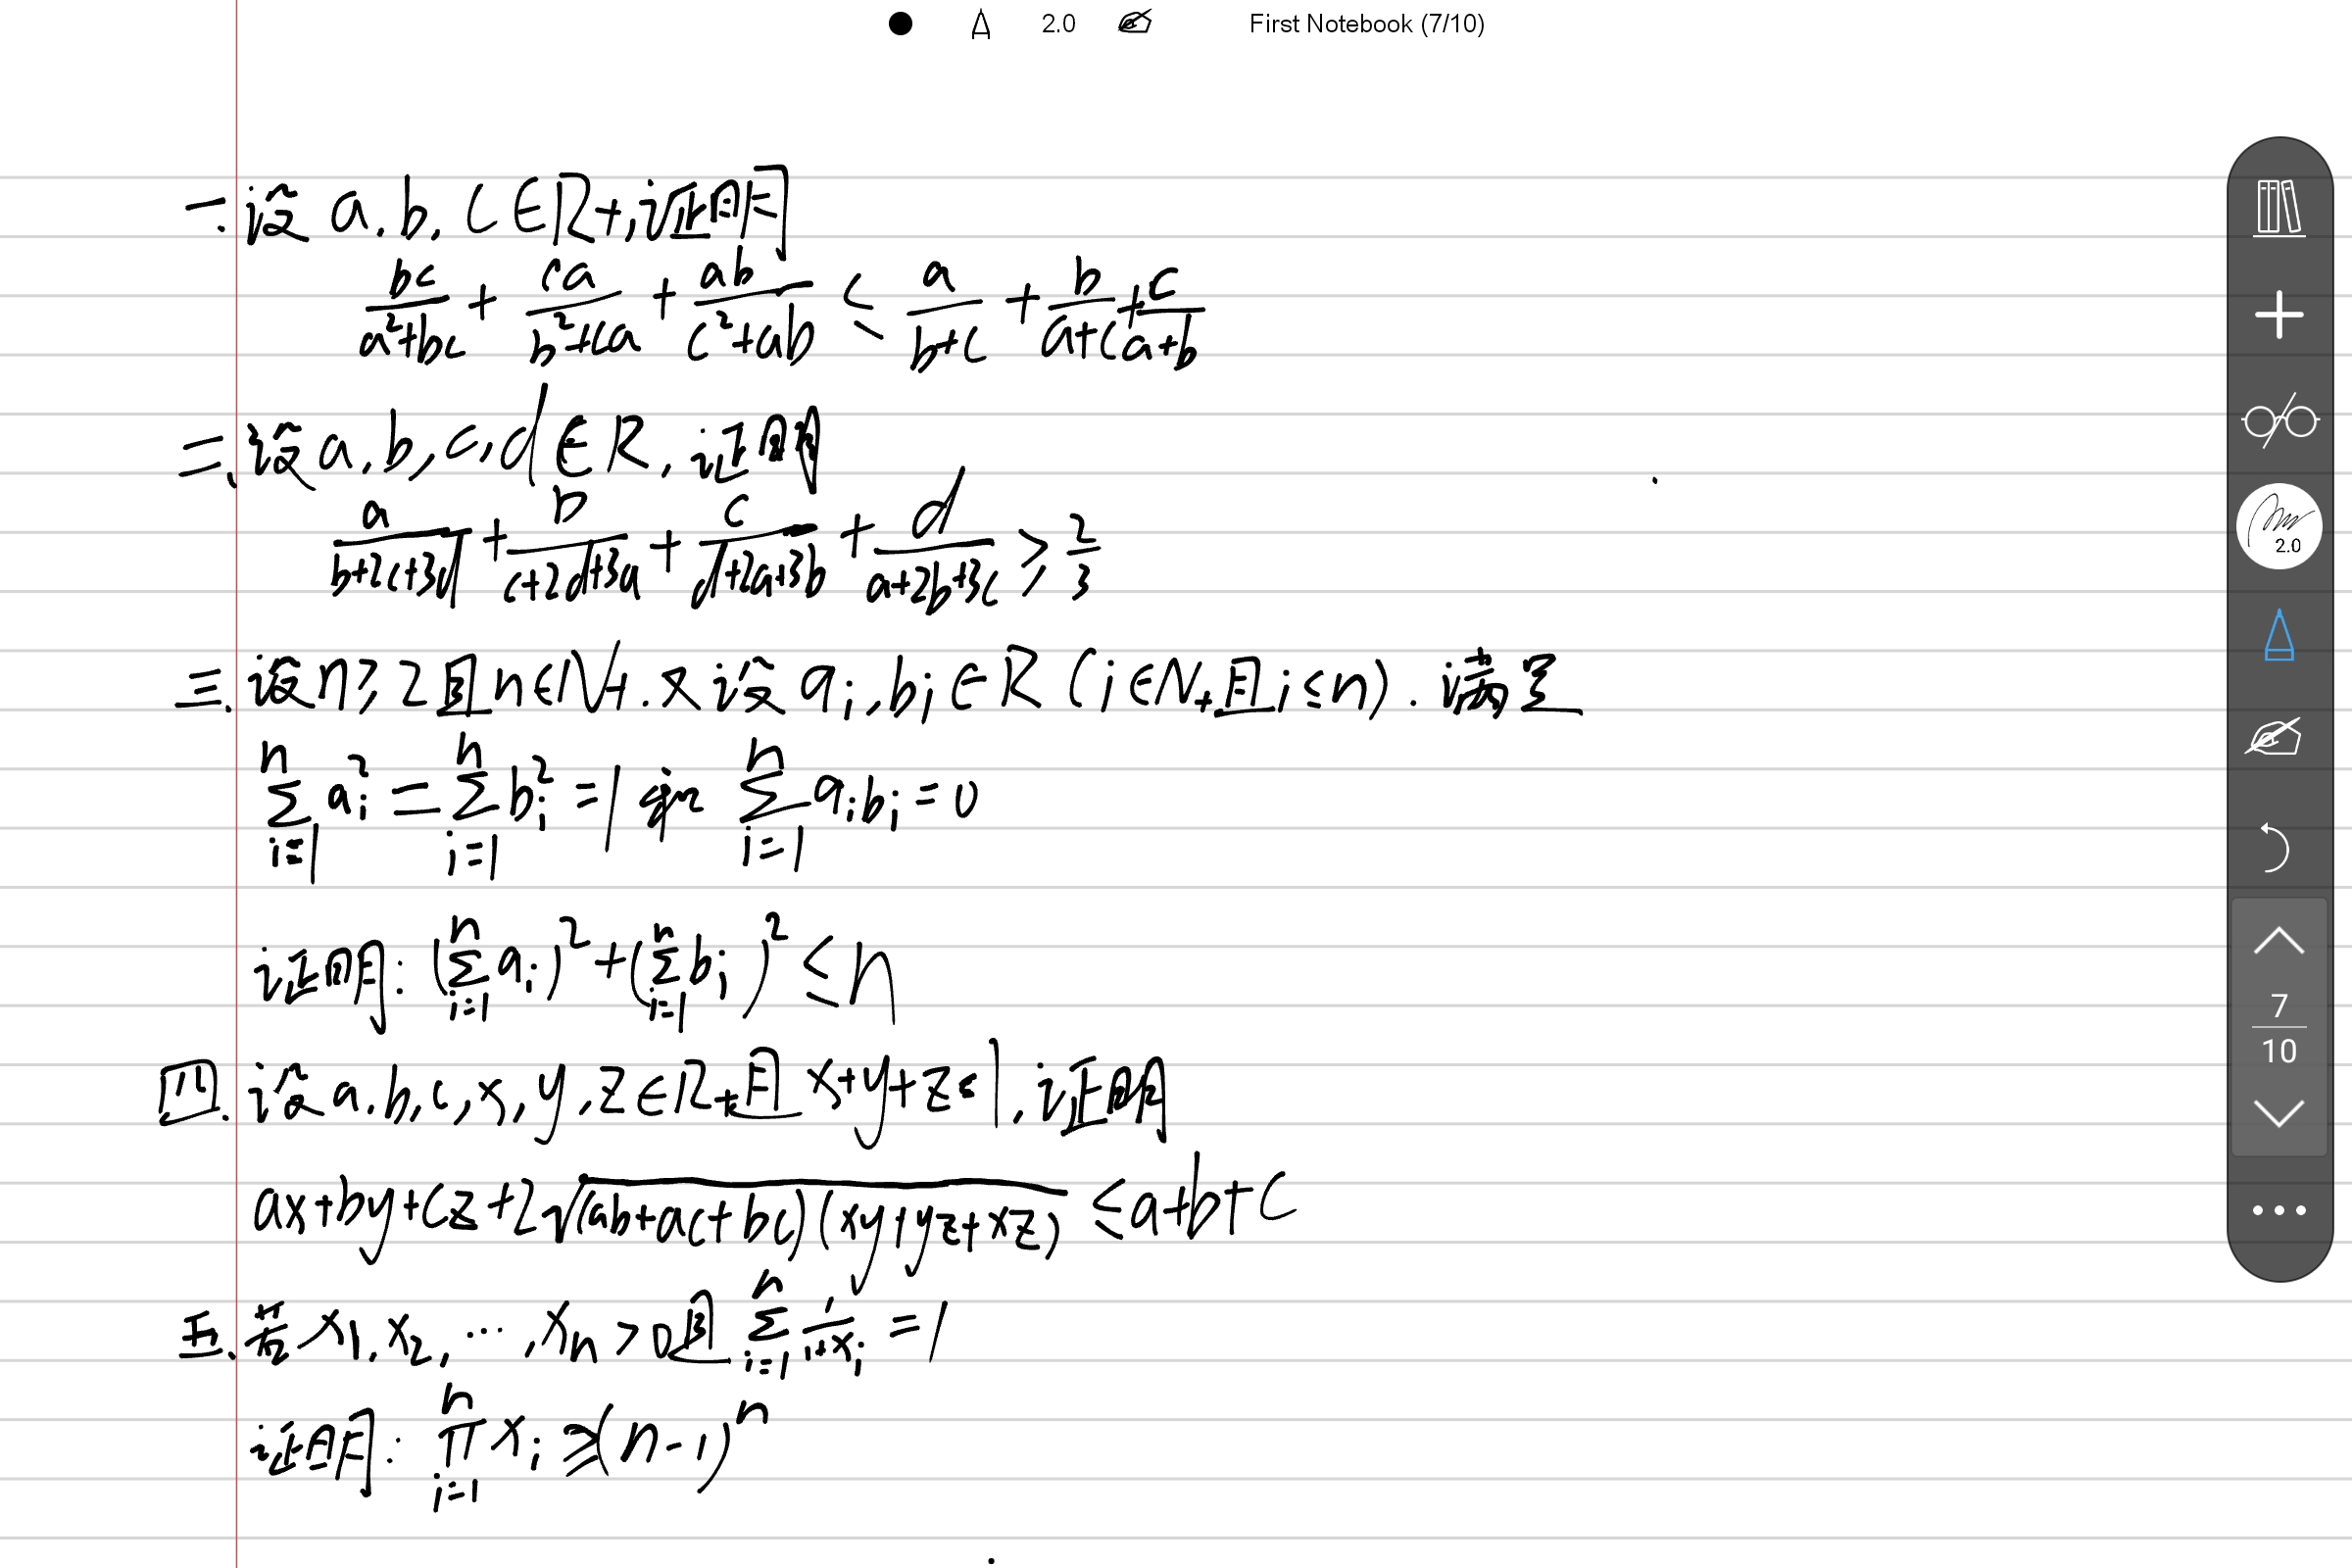 2.0 First Notebook (7/10)
一.设 a,b,c∈R+,证明
bc/(a²+bc) + ca/(b²+ca) + ab/(c²+ab) ≤ a/(b+c) + b/(a+c) + c/(a+b)
二、设a,b,c,d∈R,证明
a/(b+2c+3d) + b/(c+2d+3a) + c/(d+2a+3b) + d/(a+2b+3c) ≥ 2/3
三.设n≥2且n∈N+.又设 a_i,b_i∈R(i∈N+且i≤n).满足
∑_{i=1}^{n} a_i² = ∑_{i=1}^{n} b_i² = 1 和 ∑_{i=1}^{n} a_i b_i = 0
证明: (∑_{i=1}^{n} a_i)² + (∑_{i=1}^{n} b_i)² ≤ n
四.设a,b,c,x,y,z∈R+且 x+y+z=1,证明
ax+by+cz+2√((ab+ac+bc)(xy+yz+xz)) ≤a+b+c
五、若 x₁,x₂,…,x_n>0且 ∑_{i=1}^{n} 1/(1+x_i) = 1
证明: ∏_{i=1}^{n} x_i ≥ (n-1)^n
2.0
7
10